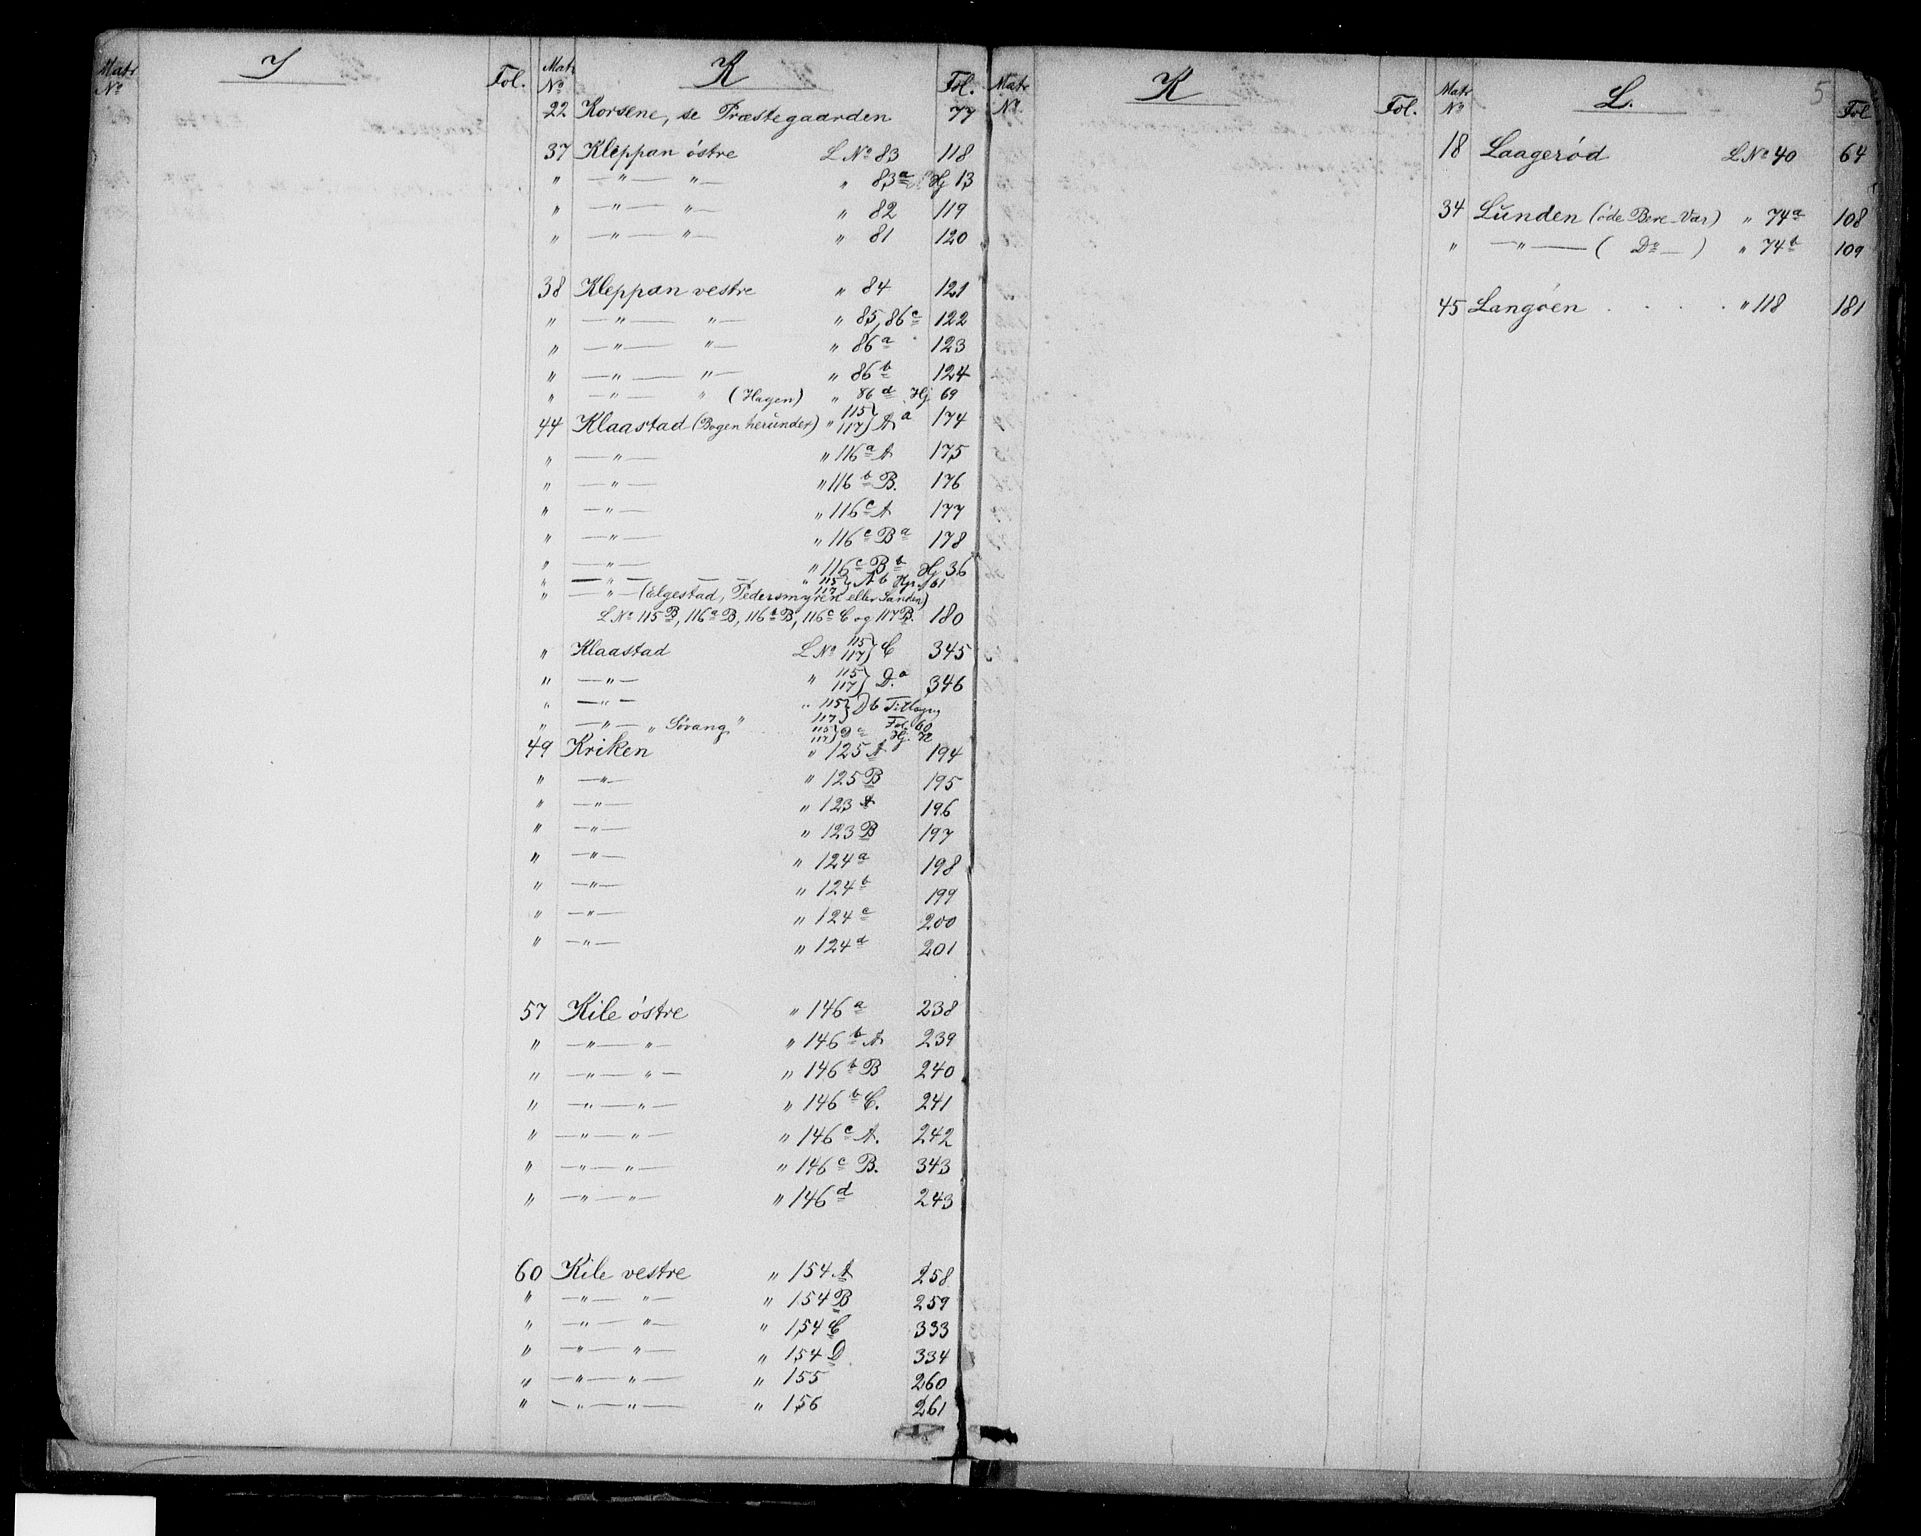 Matr. No I Fol.
Matr. No K Fol.
22 Korsene, se Præstegaarden 77
37 Kleppan östre L No 83 118
" —"— "— " 83a Hj 13
" —"— "— " 82 119
" —"— "— " 81 120
38 Kleppan vestre " 84 121
" —"— "— " 85, 86c 122
" —"— "— " 86a 123
" —"— "— " 86b 124
" —"— " (Hagen) " 86d Hj 69
44 Klaastad (Bogen herunder) " 115 117} A a 174
" —"— " 116a A 175
" —"— " 116b B. 176
" —"— " 116c A 177
" —"— " 116c Ba 178
" —"— " 116c Bb Hj 36
" —"— — — " 115 117} A b Hj 61
" —"— (Elgestad, Pedersmyren eller Sanden)
L No 115 B, 116a B, 116b B, 116c C og 117 B. 180
" Klaastad L No 115 117} C 345
" —"— " 115 117} D.a 346
" —"— " 115 117} D b Fol. 60
" —"— "Sövang" 115 117} D c Hj. 72
49 Kriken " 125 A 194
" —"— " 125 B 195
" —"— " 123 A 196
" —"— " 123 B 197
" —"— " 124a 198
" —"— " 124b 199
" —"— " 124c 200
" —"— " 124d 201
57 Kile östre " 146a 238
" —"— "— " 146b A 239
" —"— "— " 146b B 240
" —"— "— " 146b C. 241
" —"— "— " 146c A. 242
" —"— "— " 146c B. 343
" —"— "— " 146d 243
60 Kile vestre " 154 A 258
" —"— "— " 154 B 259
" —"— "— " 154 C 333
" —"— "— " 154 D 334
" —"— "— " 155 260
" —"— "— " 156 261
Matr. No. K Fol.
Matr. No L. Fol
5
18 Laagerød L No 40 64
34 Lunden (øde Bere-Vær) " 74a 108
" —"— ( Do — ) " 74b 109
45 Langöen . . . . " 118 181